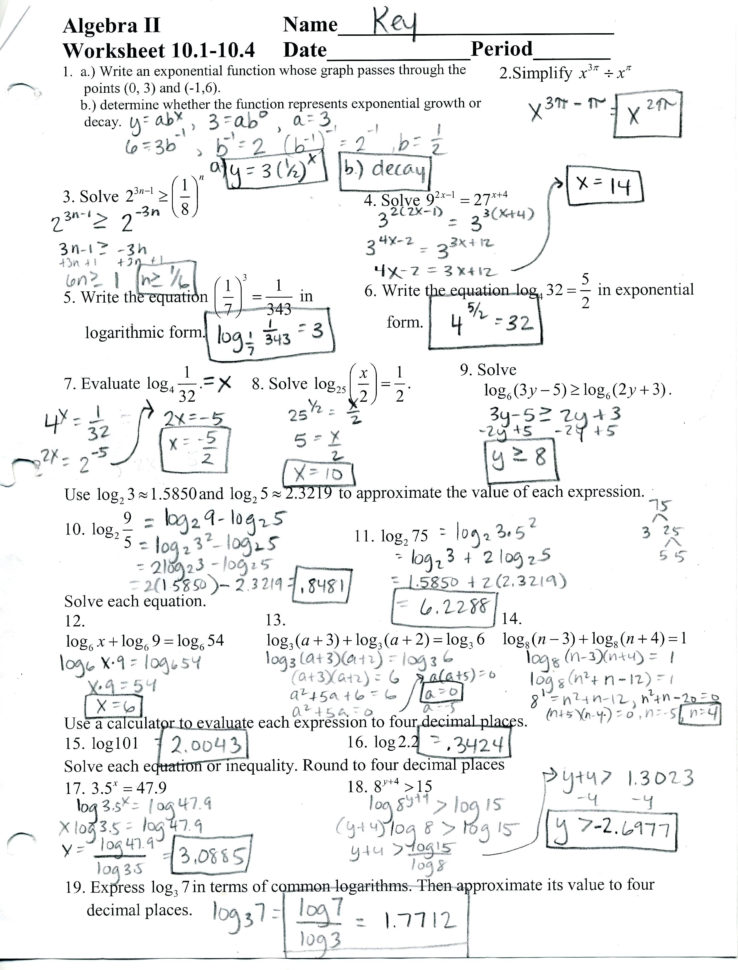 Algebra II Name Key
Worksheet 10.1-10.4 Date Period
1. a.) Write an exponential function whose graph passes through the
points (0, 3) and (-1,6).
b.) determine whether the function represents exponential growth or
decay. y = ab^x, 3 = ab^0, a = 3
6 = 3b^-1, b^-1 = 2 (b^-1)^-1 = 2^-1, b = 1/2
a) y = 3(1/2)^x b.) decay
2.Simplify x^3π ÷ x^π
x^3π - π = x^2π
3. Solve 2^3n-1 ≥ (1/8)^n
2^3n-1 ≥ 2^-3n
3n-1 ≥ -3n
+3n +1 +3n +1
6n ≥ 1 n ≥ 1/6
4. Solve 9^2x-1 = 27^x+4
3^2(2x-1) = 3^3(x+4)
3^4x-2 = 3^3x+12
4x-2 = 3x+12
x = 14
5. Write the equation (1/7)^3 = 1/343 in
logarithmic form. log_1/7 1/343 = 3
6. Write the equation log_4 32 = 5/2 in exponential
form. 4^5/2 = 32
7. Evaluate log_4 1/32. = x
4^x = 1/32
2^2x = 2^-5
2x = -5
x = -5/2
8. Solve log_25 (x/2) = 1/2.
25^1/2 = x/2
5 = x/2
x = 10
9. Solve
log_6(3y-5) ≥ log_6(2y+3).
3y-5 ≥ 2y+3
-2y+5 -2y+5
y ≥ 8
Use log_2 3 ≈ 1.5850 and log_2 5 ≈ 2.3219 to approximate the value of each expression.
10. log_2 9/5 = log_2 9 - log_2 5
= log_2 3^2 - log_2 5
= 2log_2 3 - log_2 5
= 2(1.5850) - 2.3219 = .8481
11. log_2 75 = log_2 3·5^2
= log_2 3 + 2 log_2 5
= 1.5850 + 2(2.3219)
= 6.2288
75
3 25
5 5
Solve each equation.
12.
log_6 x + log_6 9 = log_6 54
log_6 x·9 = log_6 54
x·9 = 54
x = 6
13.
log_3(a+3) + log_3(a+2) = log_3 6
log_3 (a+3)(a+2) = log_3 6
(a+3)(a+2) = 6
a^2+5a+6 = 6
a^2+5a = 0
a(a+5) = 0
a = 0
14.
log_8(n-3) + log_8(n+4) = 1
log_8 (n-3)(n+4) = 1
log_8 (n^2+n-12) = 1
8^1 = n^2+n-12, n^2+n-20 = 0
(n+5)(n-4) = 0, n = -5, n = 4
Use a calculator to evaluate each expression to four decimal places.
15. log101 = 2.0043 16. log2.2 = .3424
Solve each equation or inequality. Round to four decimal places
17. 3.5^x = 47.9
log 3.5^x = log 47.9
x log 3.5 = log 47.9
x = log 47.9/log 3.5 = 3.0885
18. 8^y+4 > 15
log 8^y+4 > log 15
(y+4) log 8 > log 15
y+4 > log 15/log 8
y+4 > 1.3023
-4 -4
y > -2.6977
19. Express log_3 7 in terms of common logarithms. Then approximate its value to four
decimal places. log_3 7 = log 7/log 3 = 1.7712